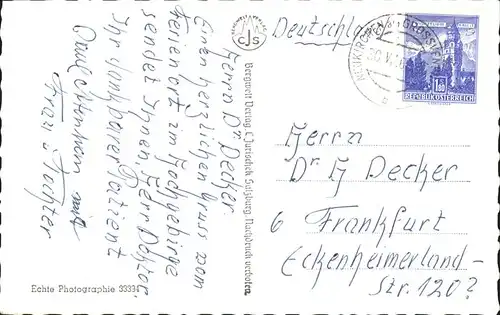 Deutschland
NEUKIRCHEN am GROSSVENEDIGER
1.80
REPUBLIK ÖSTERREICH
Herrn Dr Decker
Einen herzlichen Gruss vom
Ferienort im Hochgebirge
sendet Ihnen, Herr Doktor,
Ihr dankbarer Patient
mit
Frau u Tochter
CJS
Bergwelt Verlag, C. Jurischek Salzburg, Nachdruck verboten
Herrn
Dr H Decker
6 Frankfurt
Eckenheimerland-
Str. 120?
Echte Photographie 33334